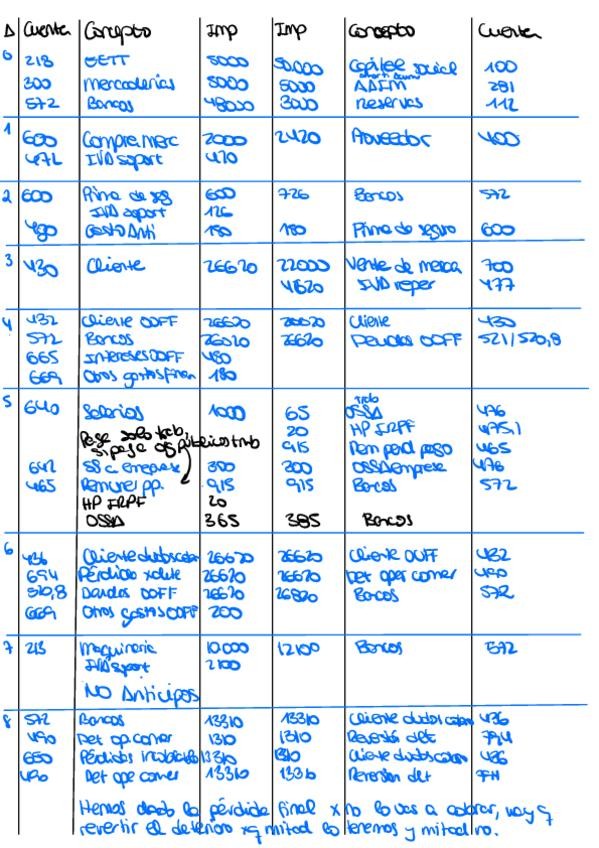 Δ Cuenta Concepto Imp Imp Concepto Cuenta
0 218 EETT 5000 50.000 Capital social 100
300 Mercaderías 5000 5000 AAIM 281
572 Bancos 48000 3000 Reservas 112
1 600 Compra merc 2000 2420 Proveedor 400
472 IVA soport 420
2 600 Prima de seg 600 726 Bancos 572
IVA soport 126
480 Gasto Anti 180 180 Prima de seguro 600
3 430 Cliente 26620 22000 Venta de merca 700
4620 IVA reper 477
4 432 Cliente OOFF 26620 26620 Cliente 430
572 Bancos 26020 26620 Deudas OOFF 521/520,8
665 Intereses OOFF 480
669 Otros gastos finan 180
5 640 Salarios 1000 65 OSSA trab 476
20 HP IRPF 475,1
Paga solo trab,
915 Rem pend pago 465
si paga org públicos tmb
642 SS c empresa 300 300 OSSA empresa 476
465 Remuner pp. 915 915 Bancos 572
HP IRPF 20
OSSA 365 385 Bancos
6 436 Cliente dudoscobr 26620 26620 Cliente OOFF 432
694 Pérdida x dete 26620 26620 Det oper comer 490
520,8 Deudas OOFF 26620 26820 Bancos 572
669 Otros gastos OOFF 200
7 213 Maquinaria 10.000 12100 Bancos 572
IVA soport 2100
NO Anticipos
8 572 Bancos 13310 13310 Cliente dudos cobro 436
490 Det op comer 1310 1310 Reversión det 794
650 Pérdidas incobrables 13310 1310 Cliente dudos cobro 436
490 Det ope comer 13310 1331 Reversión det
Hemos dado la pérdida final x no lo vas a cobrar, hay q
revertir el deterioro xq mitad lo tenemos y mitad no.